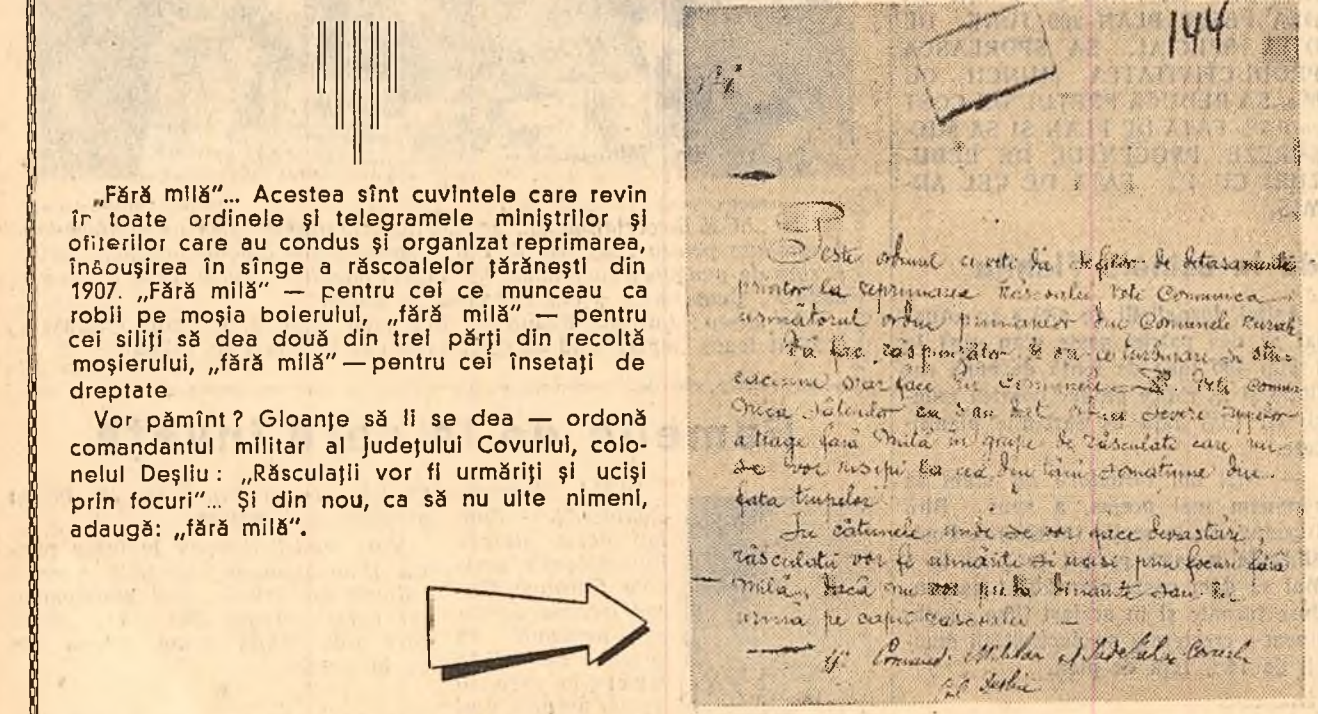 „Fără milă"... Acestea sînt cuvintele care revin
în toate ordinele și telegramele miniștrilor și
ofiterilor care au condus și organizat reprimarea,
înăbușirea în sînge a răscoalelor țărănești din
1907. „Fără milă" — pentru cei ce munceau ca
robii pe moșia boierului, „fără milă" — pentru
cei siliți să dea două din trei părți din recoltă
moșierului, „fără milă" — pentru cei însetați de
dreptate
Vor pămînt? Gloanțe să li se dea — ordonă
comandantul militar al județului Covurlui, colo-
nelul Deșliu: „Răsculații vor fi urmăriți și uciși
prin focuri"... Și din nou, ca să nu uite nimeni,
adaugă: „fără milă".
144
Peste ordinul de detasamente
la reprimarea Răscoalei Veti Comunica
următorul ordin primarilor din Comunele Rurale
Vă fac răspunzător de ori ce turburare și stri-
căciune s'ar face în Comune Veti comu-
nica sătenilor că s'au dat ordine severe trupelor
a trage fără milă în grupe de răsculati care nu
se vor risipi la cea din tâiu somatiune din
fata trupelor
In cătunele unde se vor face devastări,
răsculatii vor fi urmăriti si ucisi prin focuri fără
milă, dacă nu vor preda înainte sau în
urmă pe capii răscoalei
Comand. Militar al Judetului Covurlui
Col Deșliu